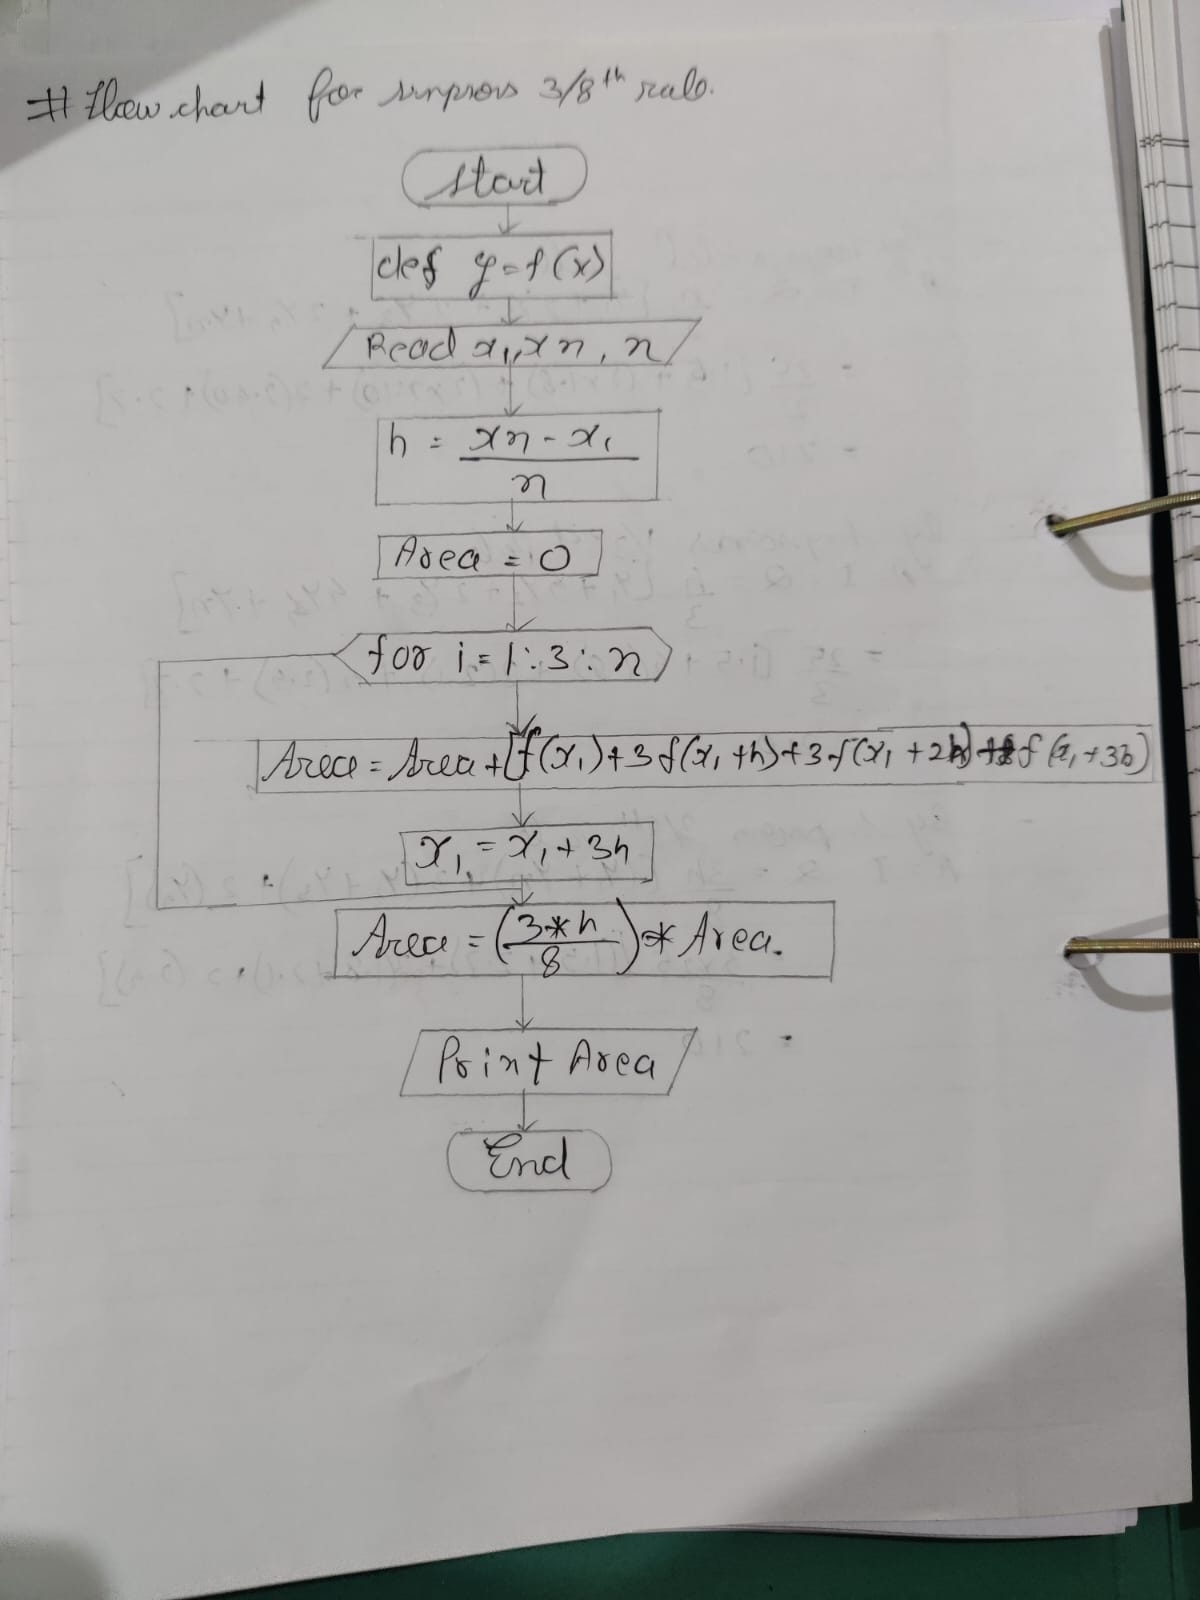 # Flow chart for simpsons 3/8th rule.
Start
def y=f(x)
Read x1, xn, n
h = xn - x1
n
Area = 0
for i = 1:3:n
Area = Area + [f(x1)+3f(x1+h)+3f(x1+2h)+f(x1+3h)
x1 = x1 + 3h
Area = (3*h/8)* Area.
Print Area
End